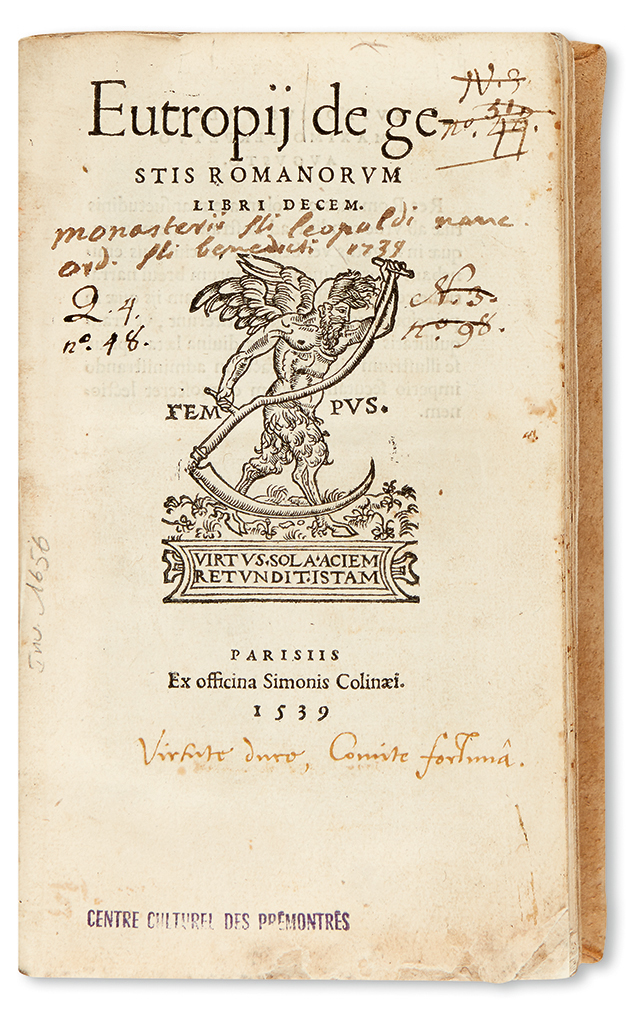 Eutropij de ge-
STIS ROMANORVM
LIBRI DECEM.
N. 3
no. 
monasterii sti leopoldi nanc.
ord. sti benedicti 1739
Q. 4.
nº. 48.
N. 3.
nº 98.
TEMPVS.
VIRTVS·SOLA·ACIEM
RETVNDIT·ISTAM
PARISIIS
Ex officina Simonis Colinæi.
1539
Virtute duce, Comite fortunâ.
Inv. 1656
CENTRE CULTUREL DES PRÉMONTRÉS